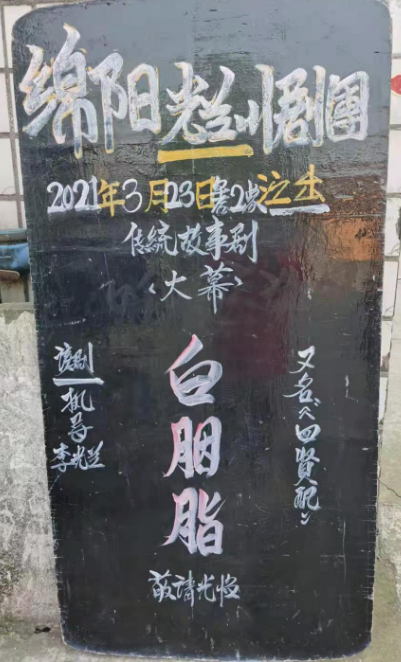 绵阳光兰川剧團
2021年3月23日 2点演出
传统故事剧
<大幕>
白胭脂
又名《四贤配》
该剧
导
李光兰
敬请光临